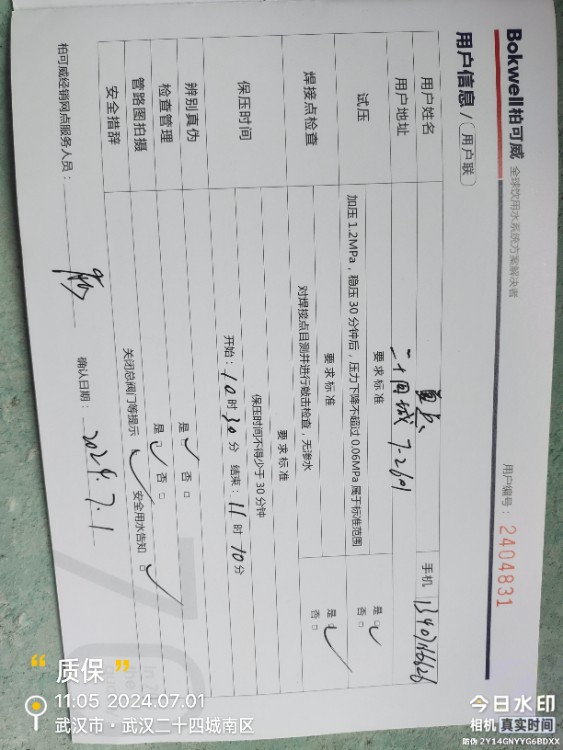 Bokwell柏可威 全球饮用水系统方案解决者
用户信息 / 用户联
用户编号：2404831
用户姓名 手机
用户地址 二十四城 7-2601
试压 要求标准
加压 1.2MPa，稳压 30 分钟后，压力下降不超过 0.06MPa 属于标准范围
是□ 否□
焊接点检查 要求标准
对焊接点目测并进行敲击检查，无渗水
是□ 否□
保压时间 要求标准
保压时间不得少于 30 分钟
开始：10 时 30 分 结束：11 时 10 分
辨别真伪 是 否□
检查管理 是 否□
管路图拍摄
安全措辞 关闭总阀门等提示 安全用水告知□
柏可威经销网点服务人员：
确认日期：2024.7.1
“质保”
11:05 2024.07.01
武汉市·武汉二十四城南区
今日水印
相机 真实时间
防伪 2Y14GNYYG6BDXX